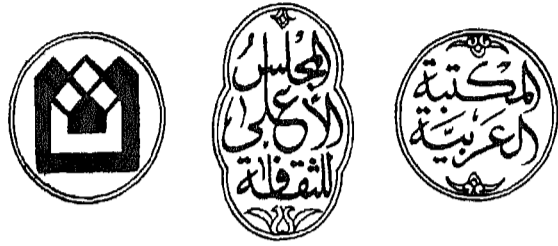 المجلس
الأعلى
للثقافة
المكتبة
العربية